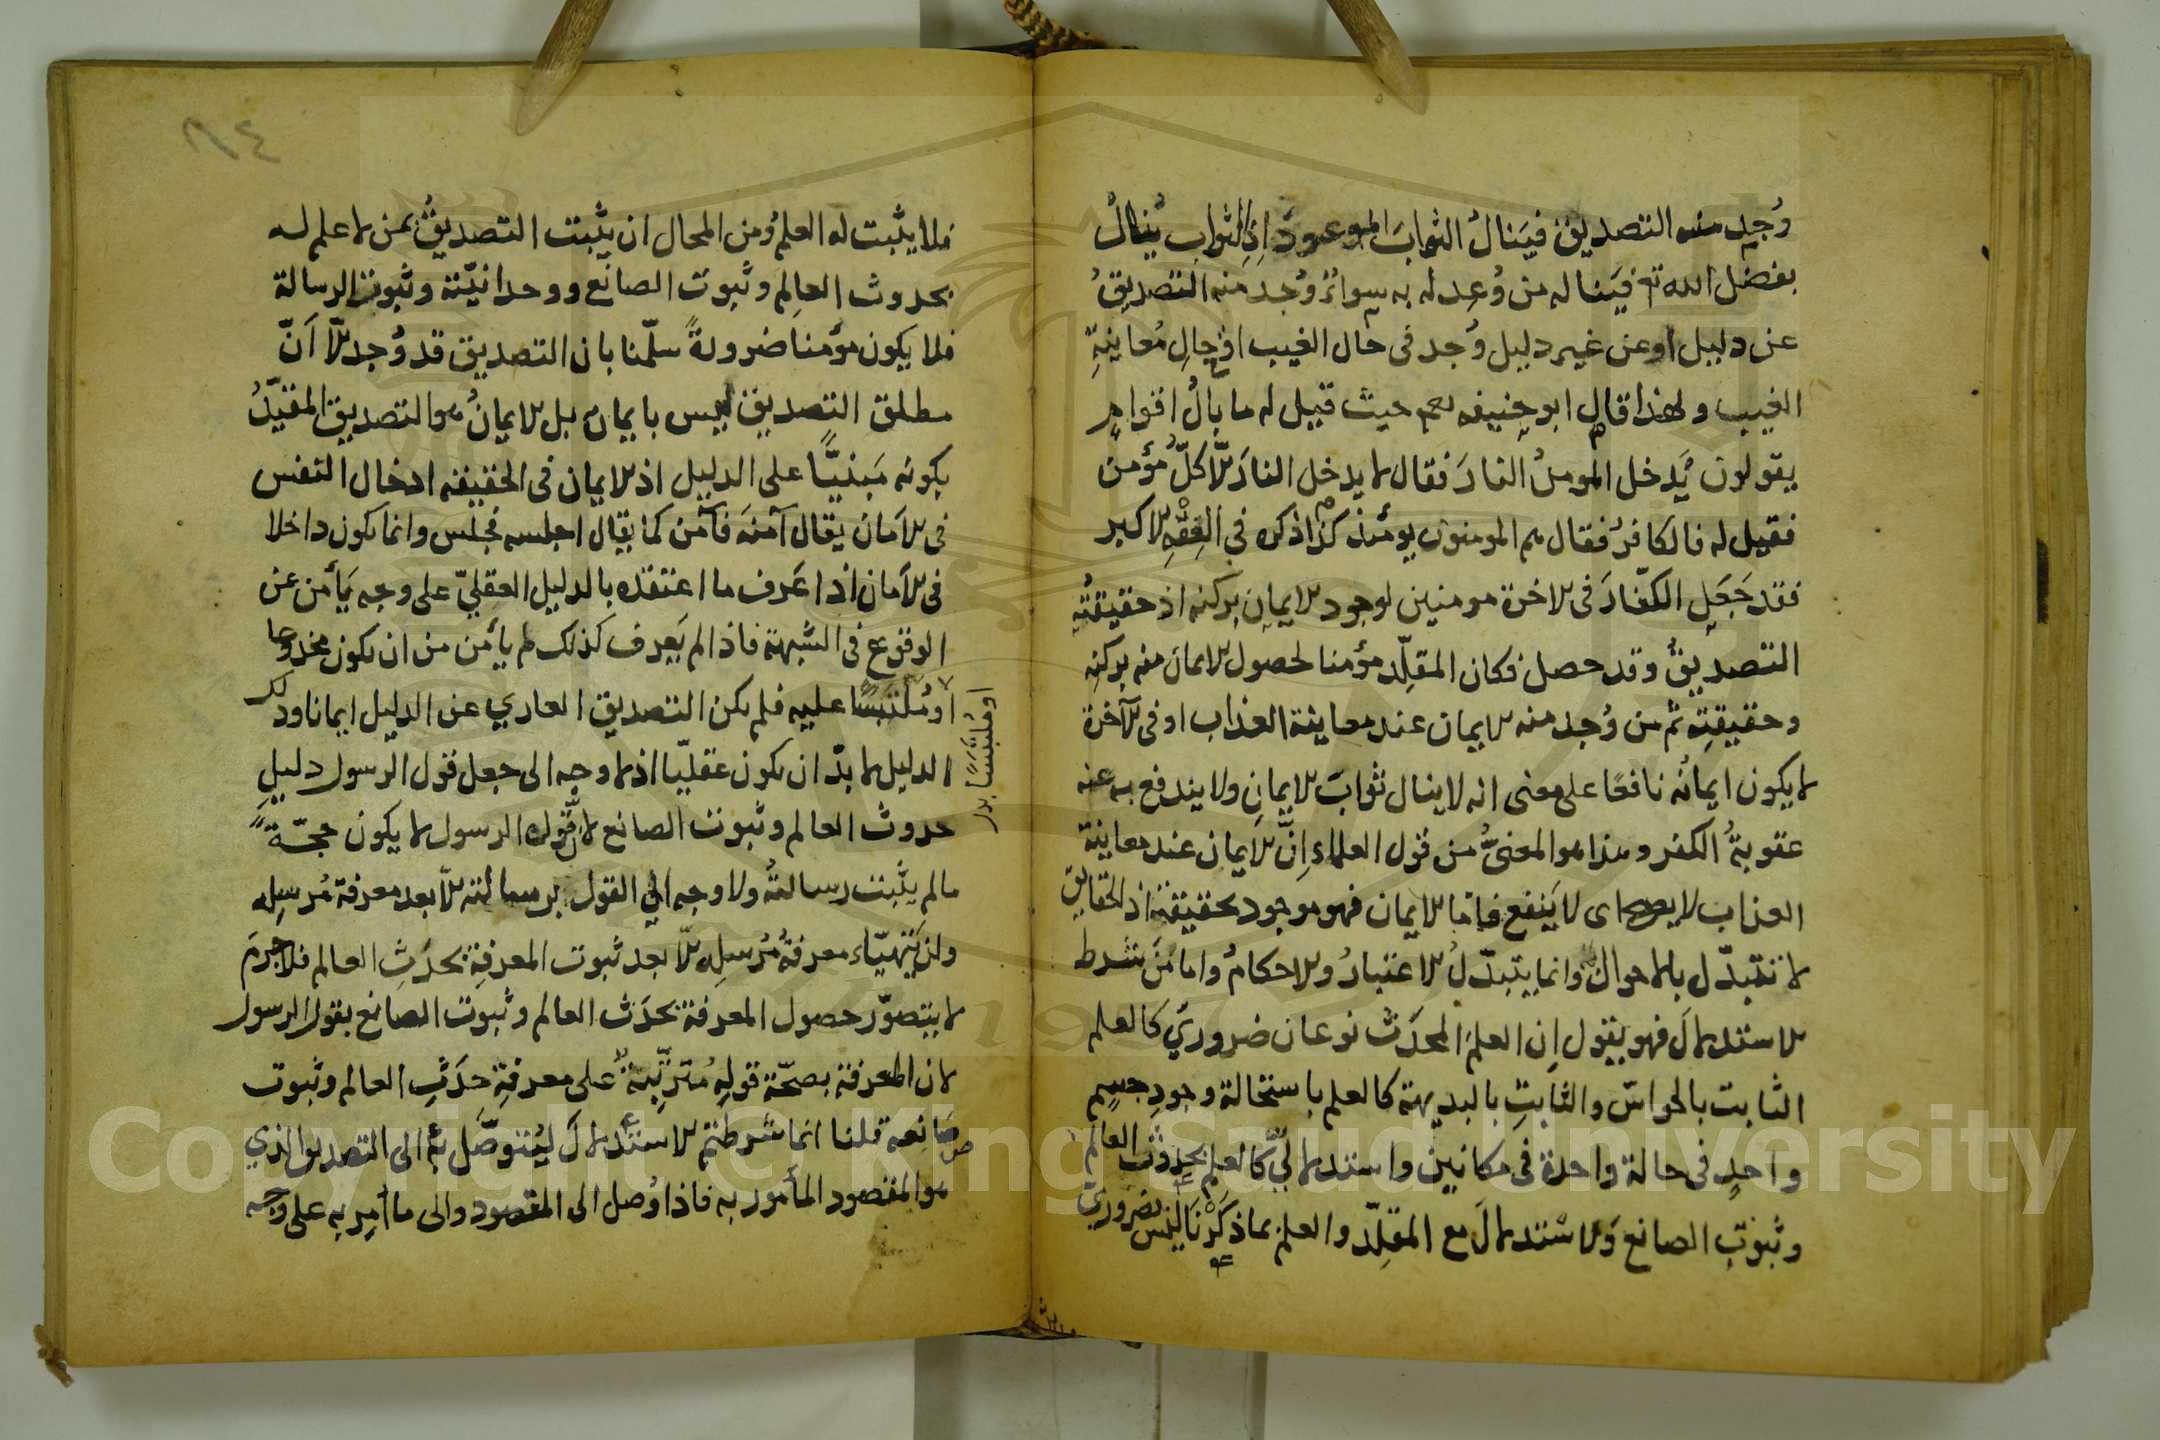 وُجد منه التصديق فيَنالُ الثوابَ الموعودَ اذِ الثواب يُنالُ
بفضل الله تع فيَناله من وُعِد له به سواءٌ وُجد منه التصديقُ
عن دليل او عن غير دليل وُجد فى حال الغيب او حالِ مُعاينةِ
الغيب ولهذا قال ابو حنيفه رحم حيث قيل له ما بالُ اقوامٍ
يقولون يَدخل المومنُ النارَ فقال لا يدخل النارَ الّا كلّ مؤمن
فقيل له فالكافرُ فقال هم المومنون يومئذ كذا ذكره في الفِقْهِ الاكبر
فقد جَعَل الكفّارَ فى الاخرة مومنين لوجود الايمان بركنه اذ حقيقتُه
التصديقُ وقد حصل فكان المقلِّد مؤمنا لحصول الايمان منه بركنِه
وحقيقتِه ثم من وُجد منه الايمان عند معاينة العذاب او فى الآخرة
لا يكون ايمانُه نافعًا على معنى انه لا ينال ثوابَ الايمانِ ولا يندفع به عنه
عقوبةُ الكفر وهذا هو المعنىُّ من قول العلماء اِنّ الايمان عند معاينة
العذاب لا يصح اى لا يَنفع فامّا الايمان فهو موجود بحقيقته اذ الحقايق
لا تتبدّل بالاحوال وانما يتبدّلُ الاعتبارُ والاحكامُ واما مَن شرط
الاستدلالَ فهو يقول اِن العلمَ المحدَث نوعان ضروريّ كالعلم
الثابت بالحواسّ والثابتِ بالبديهة كالعلم باستحالة وجودِ جسمٍ
واحدٍ فى حالة واحدة فى مكانين واستدلاليّ كالعلم بحدوث العالم
وثبوتِ الصانع ولا استدلالَ مع المقلِّد والعلم بما ذكَرْنا ليس بضروريّ
فلا يثبت له العلمُ ومن المحال ان يثبت التصديقُ بمن لا علم له
بحدوث العالِم وثبوت الصانع ووحدانيّته وثبوت الرسالة
فلا يكون مؤمنا ضرورةً سلّمنا بان التصديق قد وُجد الّا اَنّ
مطلق التصديق ليس بايمان بل الايمانُ هو التصديق المقيّدُ
بكونه مَبنيًّا على الدليل اذ الايمان فى الحقيقه ادخال النفس
فى الاَمان يقال آمنَه فآمن كما يقال اجلسه فجلس وانما يكون داخلا
فى الاَمان اذا عَرف ما اعتقده بالدليل العقليّ على وجه يَأمن عن
الوقوع فى الشبهة فاذا لم يَعرف كذلك لم يأمن من ان يكون مخدوعا
اومُلتَبَسًا عليه فلم يكن التصديق العاري عن الدليل ايمانا وذلك
اومُلتَبَسًا بدر
الدليل لا بدّ ان يكون عقليّا اذ لا وجه الى جعل قول الرسول دليلِ
حدوث العالم وثبوت الصانع لانّ قوله الرسول لا يكون حجّةً
ما لم يثبت رسالتُه ولا وجه الى القول برسالته الّا بعد معرفة مُرسِله
ولن يَتهيّاء معرفةُ مُرسِله الّا بعد ثبوت المعرفةِ بحدَثِ العالم فلا جرمَ
لا يتصوّر حصول المعرفة بحدَث العالم وثبوت الصانع بقول الرسول
لان المعرفة بصحّة قولِه مُترتّبة على معرفةِ حدَثِ العالم وثبوت
صَانِعه قلنا انما شرطتم الاستدلالَ ليُتوصَّل به الى التصديق الذي
هو المقصود المأمور به فاذا وُصل الى المقصود والى ما اُمِر به على وجه